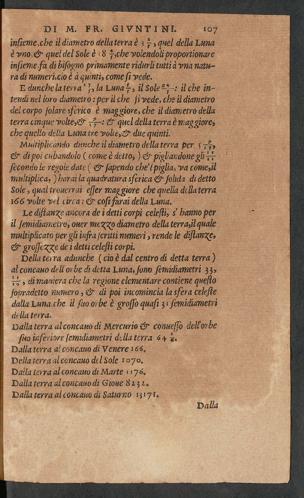 DI M. FR. GIVNTINI. 107
insieme.che il diametro della terra è 3 2/5, quel della Luna
è vno.& quel del Sole è 18 4/5.che volendoli proportionare
insieme fa di bisogno primamente ridurli tutti à vna natu-
ra di numeri.cio è à quinti, come si vede.
E dunche la terra 17/5, la Luna 5/5, il Sole 94/5: il che in-
tendi nel loro diametro: per il che si vede, che il diametro
del corpo solare sferico è maggiore, che il diametro della
terra cinque volte,& & quel della terra è maggiore,
che quello della Luna tre volte,& due quinti.
Multiplicando dunche il diametro della terra per 5
& di poi cubandolo ( come è detto, ) & pigliandone gli
secondo le regole date ( & sapendo che'l piglia, va come,il
multiplica, ) harai la quadratura sferica & soluda di detto
Sole, qual trouerai esser maggiore che quella della terra
166 volte vel circa: & cosi farai della Luna.
Le distanze ancora de i detti corpi celesti, s'hanno per
il semidiametro, ouer mezzo diametro della terra,il quale
multiplicato per gli infrascritti numeri, rende le distanze,
& grossezze de i detti celesti corpi.
Della terra adunche ( cio è dal centro di detta terra )
al concauo dell'orbe di detta Luna, sono semidiametri 33,
di maniera che la regione elementare contiene questo
sopradetto numero, & di poi incomincia la sfera celeste
dalla Luna che il suo orbe è grosso quasi 31 semidiametri
della terra.
Dalla terra al concauo di Mercurio & conuesso dell'orbe
suo inferiore semidiametri della terra 64
Dalla terra al concauo di Venere 166.
Della terra al concauo del Sole 1070.
Dalla terra al concauo di Marte 1176.
Dalla terra al concauo di Gioue 8232.
Dalla terra al concauo di Saturno 13171.
Dalla